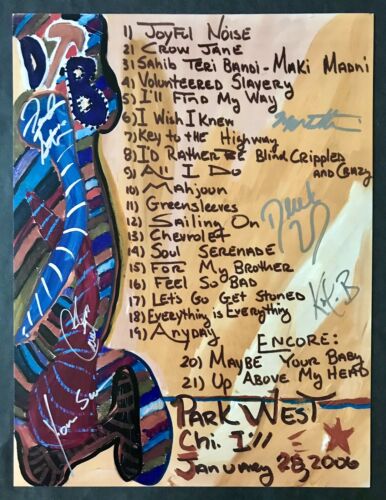 DTB
1) JOYFUL NOISE
2) CROW JANE
3) SAHIB TERI BANDI - MAKI MADNI
4) VOLUNTEERED SLAVERY
5) I'LL FIND MY WAY
6) I WISH I KNEW
7) KEY TO THE HIGHWAY
8) I'D RATHER BE BLIND CRIPPLED
AND CRAZY
9) ALL I DO
10) MAHJOUN
11) GREENSLEEVES
12) SAILING ON
13) CHEVROLET
14) SOUL SERENADE
15) FOR MY BROTHER
16) FEEL SO BAD
17) LET'S GO GET STONED
18) EVERYTHING IS EVERYTHING
19) ANYDAY
ENCORE:
20) MAYBE YOUR BABY
21) UP ABOVE MY HEAD
PARK WEST
Chi. Ill
JANUARY 28, 2006
Derek
Kofi B